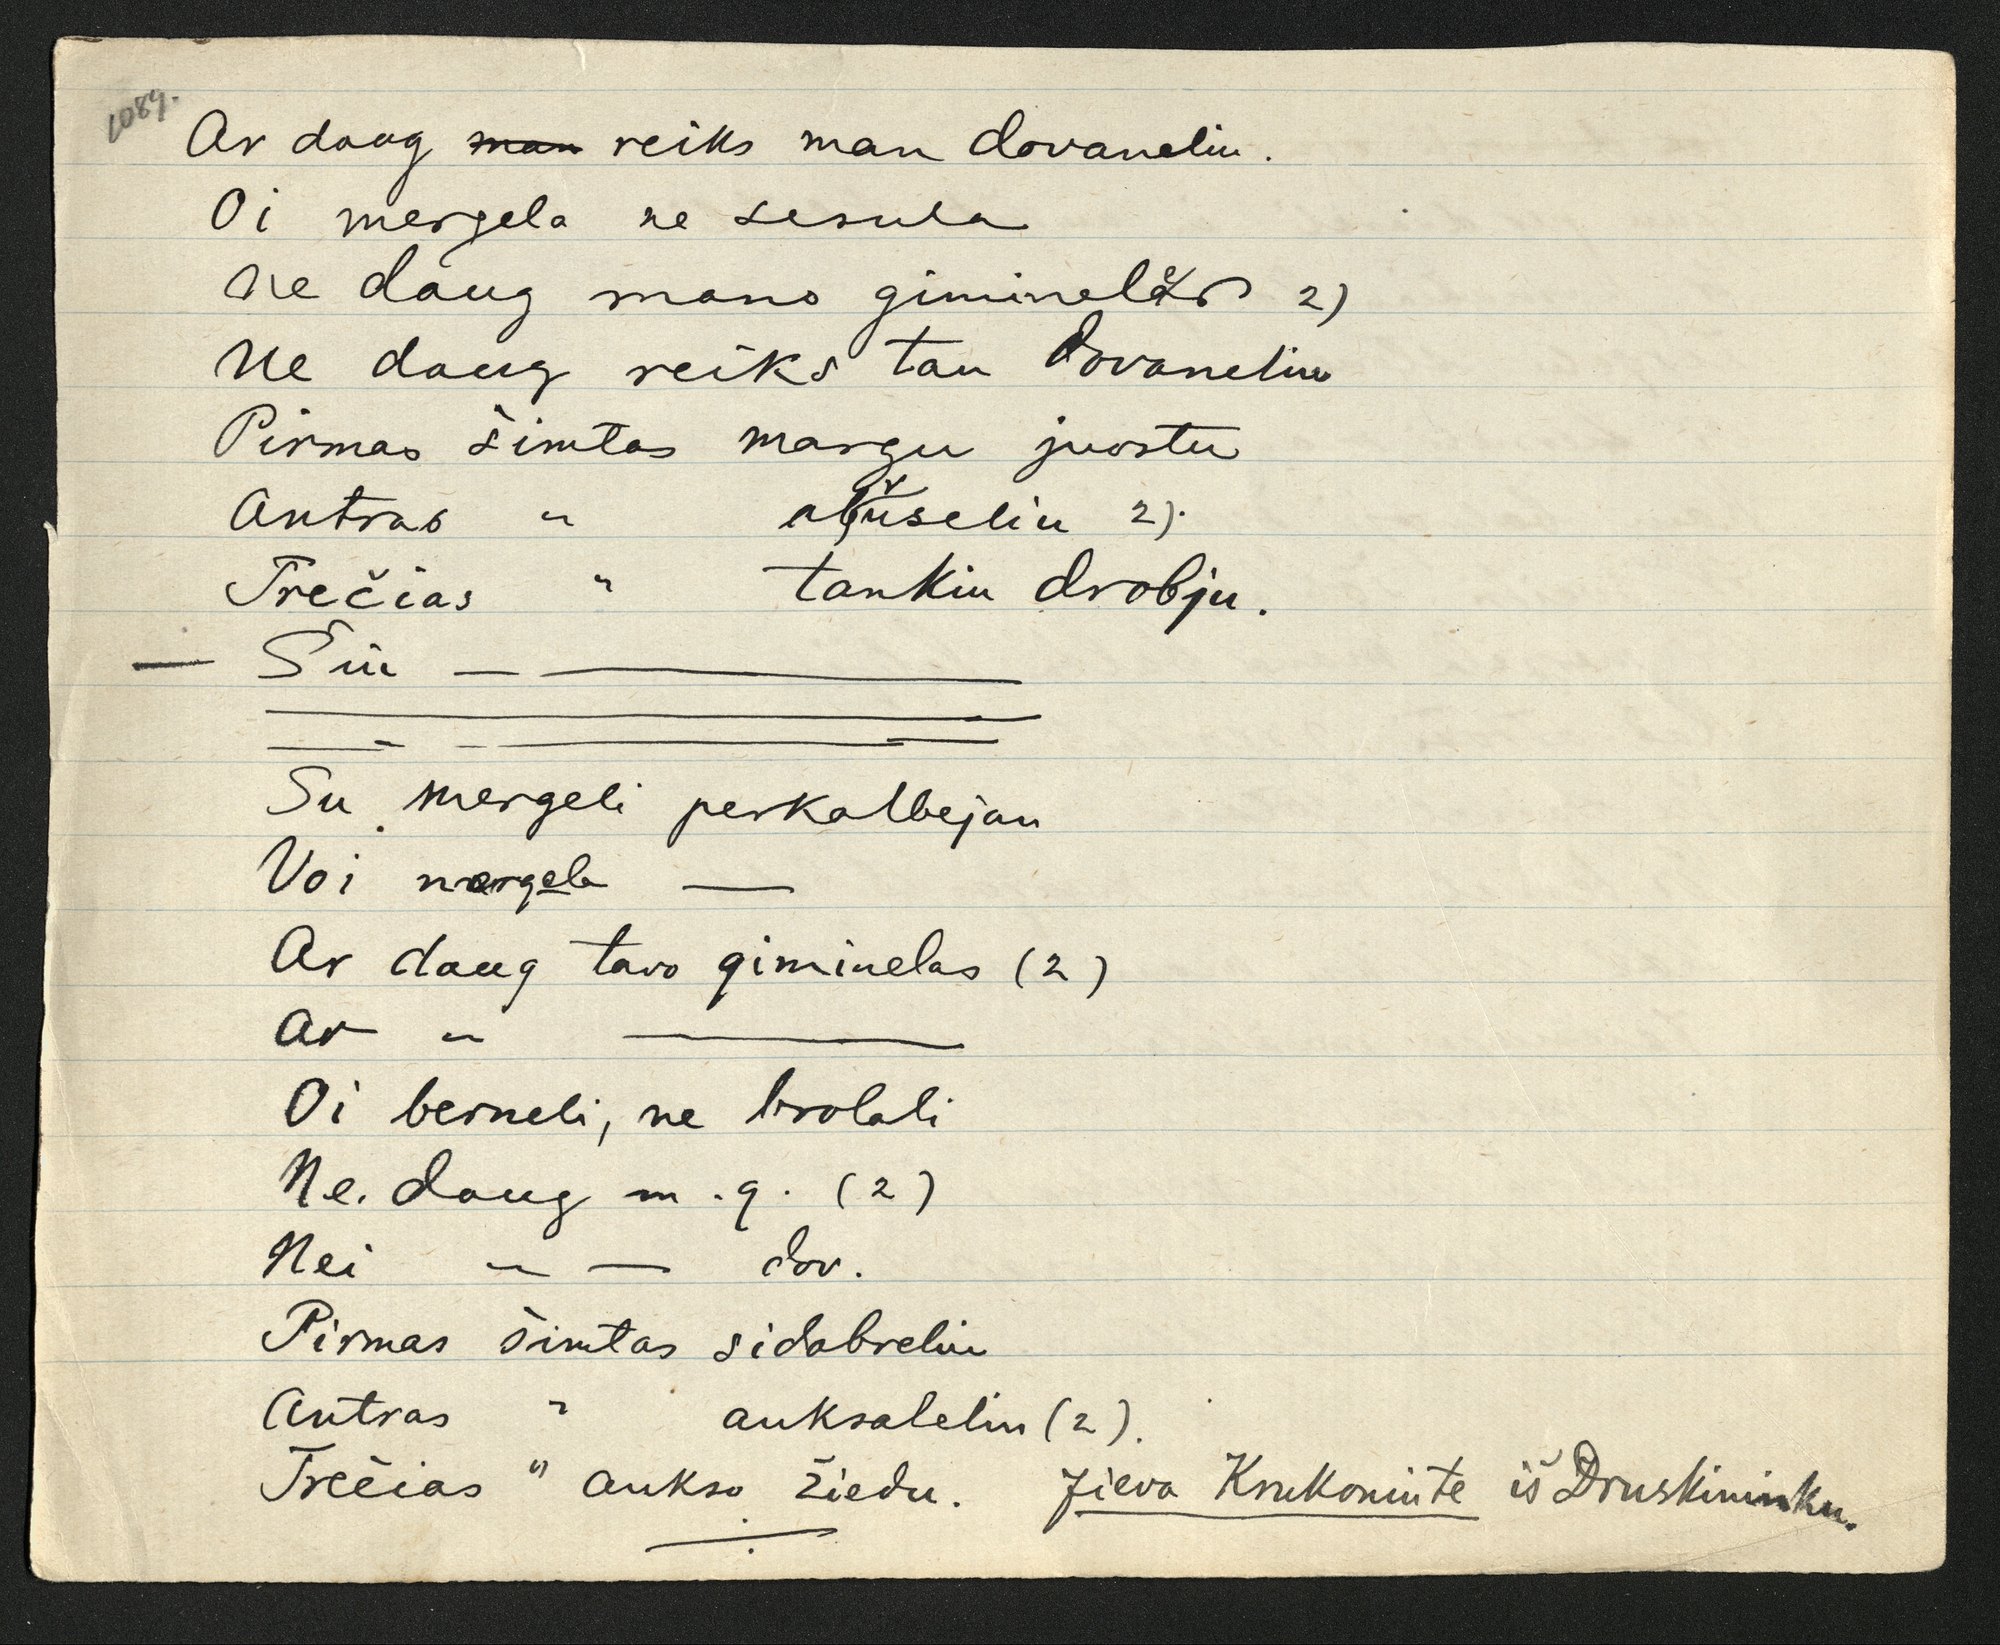 1089.
Ar daug ~~man~~ reiks man dovaneliu.
Oi mergela ne sesula
Ne daug mano giminelės 2)
Ne daug reiks tau dovaneliu
Pirmas šimtas margu juostu
Antras " abrūseliu 2).
Trečias " tankiu drobju.
— Šiū — ———
———
— — — ———
Su mergeli perkalbejau
Voi mergela —
Ar daug tavo giminelas (2)
Ar " ———
Oi berneli, ne brolali
Ne. daug m. g. (2)
Nei " — dov.
Pirmas šimtas sidabreliu
Antras " auksaleliu (2).
Trečias " aukso žiedu. Jieva Krukoniute iš Druskininku.